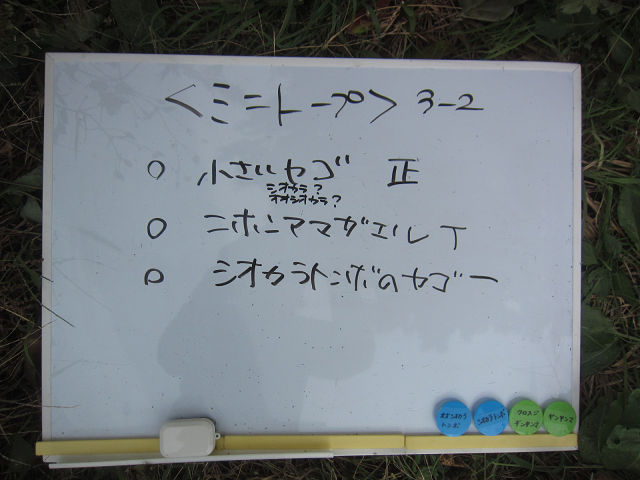 <ミニトープ> 3-2
○ 小さいヤゴ 正
シオカラ?
オオシオカラ?
○ ニホンアマガエル T
○ シオカラトンボのヤゴ 一
オオシオカラ
トンボ
シオカラトンボ
クロスジ
ギンヤンマ
ギンヤンマ